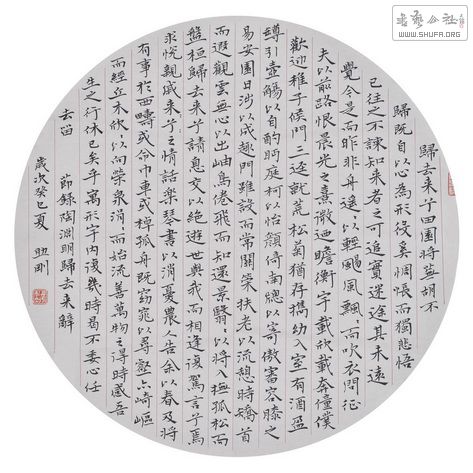 歸去來兮田園將蕪胡不
歸既自以心為形役奚惆悵而獨悲悟
已往之不諫知來者之可追實迷途其未遠
覺今是而昨非舟遙以輕颺風飄而吹衣問征
夫以前路恨晨光之熹微迺瞻衡宇載欣載奔僮僕
歡迎稚子候門三逕就荒松菊猶存攜幼入室有酒盈
罇引壺觴以自酌眄庭柯以怡顏倚南牕以寄傲審容膝之
易安園日涉以成趣門雖設而常關策扶老以流憩時矯首
而遐觀雲無心以出岫鳥倦飛而知還景翳以將入撫孤松而
盤桓歸去來兮請息交以絕遊世與我而相違復駕言兮焉
求悅親戚之情話樂琴書以消憂農人告余以春及將
有事於西疇或命巾車或棹孤舟既窈窕以尋壑亦崎嶇
而經丘木欣以向榮泉涓而始流善萬物之得時感吾
生之行休已矣乎寓形宇內復幾時曷不委心任
去留 節錄陶淵明歸去來辭
歲次癸巳夏 剛
WWW.SHUFA.ORG